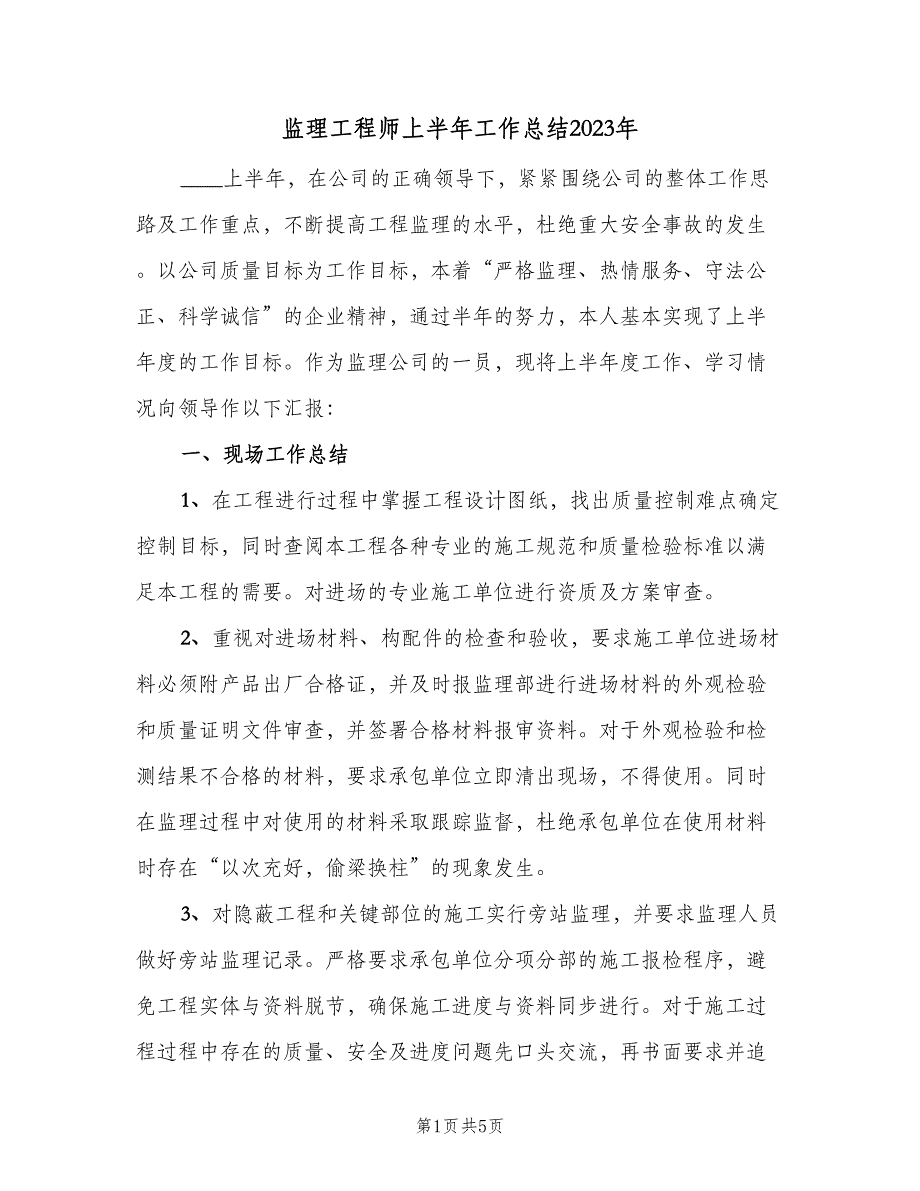 监理工程师上半年工作总结2023年
____上半年，在公司的正确领导下，紧紧围绕公司的整体工作思
路及工作重点，不断提高工程监理的水平，杜绝重大安全事故的发生
。以公司质量目标为工作目标，本着“严格监理、热情服务、守法公
正、科学诚信”的企业精神，通过半年的努力，本人基本实现了上半
年度的工作目标。作为监理公司的一员，现将上半年度工作、学习情
况向领导作以下汇报：
一、现场工作总结
1、在工程进行过程中掌握工程设计图纸，找出质量控制难点确定
控制目标，同时查阅本工程各种专业的施工规范和质量检验标准以满
足本工程的需要。对进场的专业施工单位进行资质及方案审查。
2、重视对进场材料、构配件的检查和验收，要求施工单位进场材
料必须附产品出厂合格证，并及时报监理部进行进场材料的外观检验
和质量证明文件审查，并签署合格材料报审资料。对于外观检验和检
测结果不合格的材料，要求承包单位立即清出现场，不得使用。同时
在监理过程中对使用的材料采取跟踪监督，杜绝承包单位在使用材料
时存在“以次充好，偷梁换柱”的现象发生。
3、对隐蔽工程和关键部位的施工实行旁站监理，并要求监理人员
做好旁站监理记录。严格要求承包单位分项分部的施工报检程序，避
免工程实体与资料脱节，确保施工进度与资料同步进行。对于施工过
程过程中存在的质量、安全及进度问题先口头交流，再书面要求并追
第1页共5页